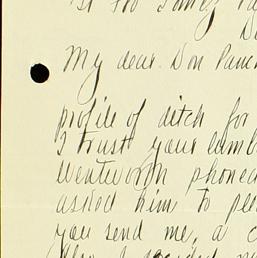 My dear Don Panc
profile of ditch for
I trust your lumb
Wentworth phoned
asked him to pe
you send me, a c